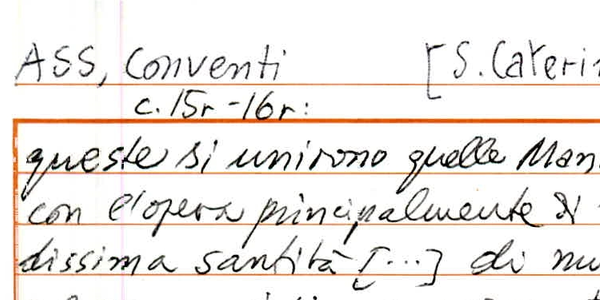 ASS, Conventi [S. Caterin
c. 15r-16r:
queste si unirono quelle Man
con l'opera principalmente di
dissima santità [...] di nu